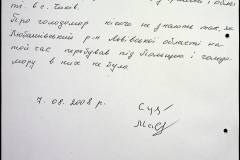 ті в с. Чижів.
Про голодомор нічого не знають так, як
Любашівський р-н Львівської області на
той час перебував під Польщею і голодо-
мору в них не було.
7.08.2008 р.